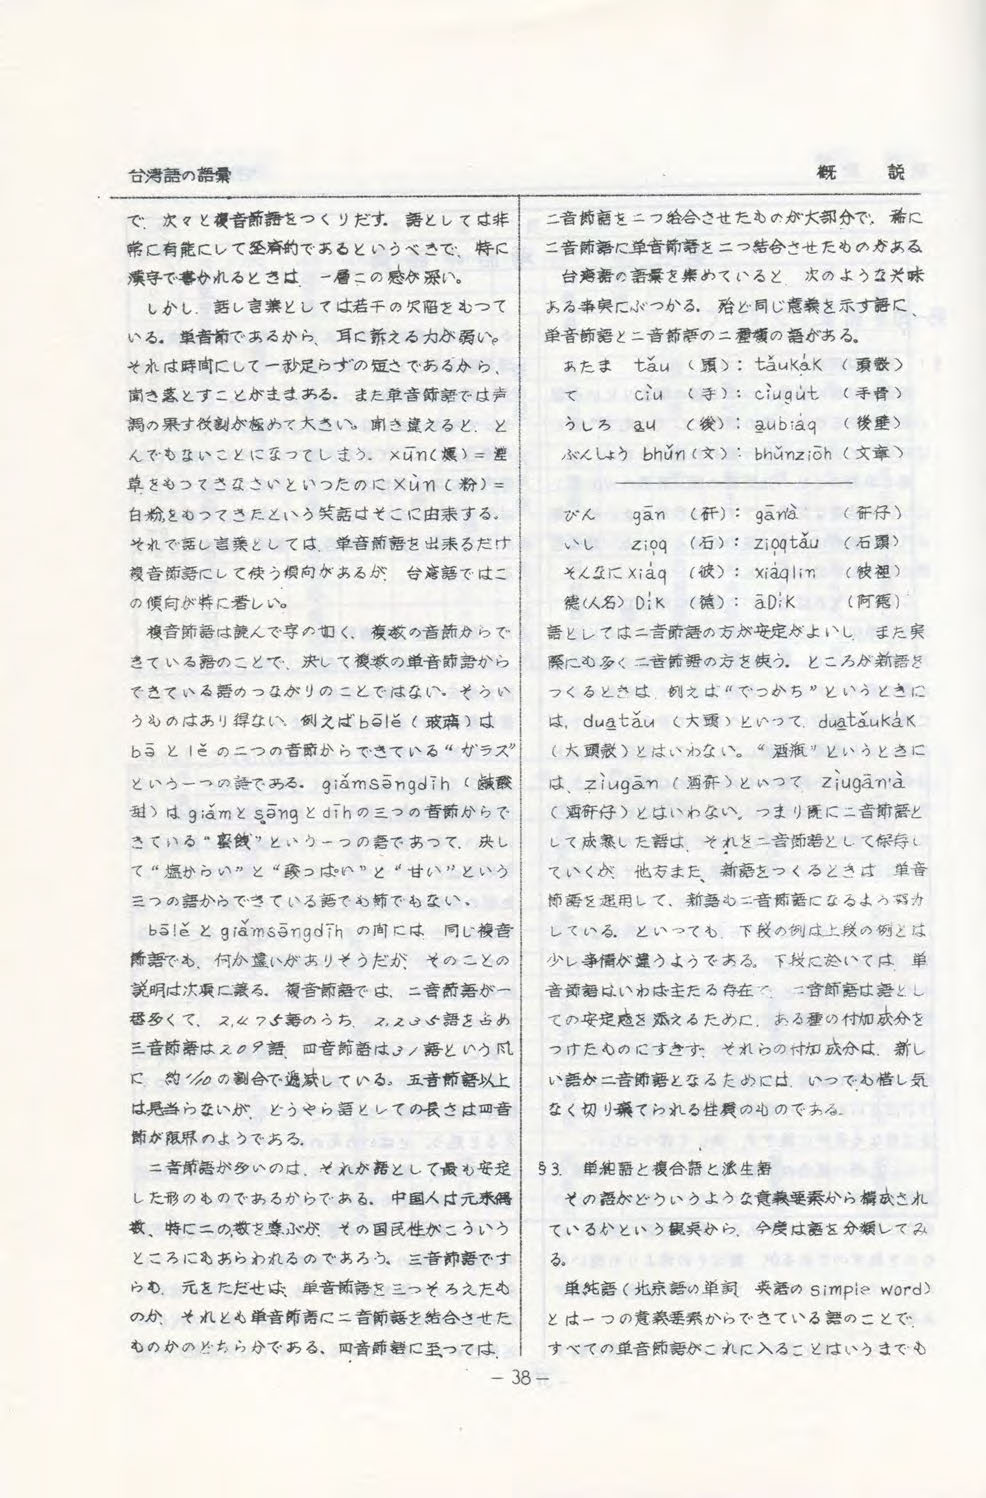 台湾語の語彙
概 説
で、次々と複音節語をつくりだす。語としては非
常に有能にして経済的であるというべきで、特に
漢字で書かれるときは、一層この感が深い。
しかし、話し言葉としては若干の欠陥をもつて
いる。単音節であるから、耳に訴える力が弱い。
それは時間にして一秒足らずの短さであるから、
聞き落とすことがままある。また単音節語では声
調の果す役割が極めて大きい。聞き違えると、と
んでもないことになってしまう。xūn(燻)=煙
草をもってきなさいといったのにxùn(粉)=
白粉をもつてきたという笑話はそこに由来する。
それで話し言葉としては、単音節語を出来るだけ
複音節語にして使う傾向があるが、台湾語ではこ
の傾向が特に著しい。
複音節語は読んで字の如く、複数の音節からで
きている語のことで、決して複数の単音節語から
できている語のつながりのことではない。そうい
うものはあり得ない。例えばbōlě(玻璃)は
bōとlěの二つの音節からできている“ガラス”
という一つの語である。giǎmsēngdīh(鹹酸
甜)はgiǎmとsēngとdīhの三つの音節からで
きている“蜜餞”という一つの語であつて、決し
て“塩からい”と“酸っぱい”と“甘い”という
三つの語からできている語でも節でもない。
bōlěとgiǎmsēngdīhの間には、同じ複音
節語でも、何か違いがありそうだが、そのことの
説明は次項に譲る。複音節語では、二音節語が一
番多くて、2,475語のうち、2,235語を占め
三音節語は209語、四音節語は31語という風
に、約1/10の割合で逓減している。五音節語以上
は見当らないが、どうやら語としての長さは四音
節が限界のようである。
二音節語が多いのは、それが語として最も安定
した形のものであるからである。中国人は元来偶
数、特に二の数を尊ぶが、その国民性がこういう
ところにもあらわれるのであろう。三音節語です
らも、元をただせば、単音節語を三つそろえたも
のか、それとも単音節語に二音節語を結合させた
ものかのどちらかである。四音節語に至つては、
二音節語を二つ結合させたものが大部分で、稀に
二音節語に単音節語を二つ結合させたものがある
台湾語の語彙を集めていると、次のような興味
ある事実にぶつかる。殆ど同じ意義を示す語に、
単音節語と二音節語の二種類の語がある。
あたま tǎu (頭): tǎukák (頭殻)
て cìu (手): cìugút (手骨)
うしろ au (後): aubiáq (後壁)
ぶんしょう bhǔn(文): bhǔnziōh (文章)
びん gān (矸): gān'à (矸仔)
いし zioq (石): zioqtǎu (石頭)
そんなに xiáq (彼): xiáqlin (彼裡)
徳(人名) Dík (徳): āDík (阿徳)
語としては二音節語の方が安定がよいし、また実
際にも多く二音節語の方を使う。ところが新語を
つくるときは、例えば“でっかち”というときに
は、duatǎu (大頭)といって、duatǎukák
(大頭殻)とはいわない。“酒瓶”というときに
は、zìugān (酒矸)といつて、zìugān'à
(酒矸仔)とはいわない。つまり既に二音節語と
して成熟した語は、それを二音節語として保存し
ていくが、他方また、新語をつくるときは、単音
節語を運用して、新語も二音節語になるよう努力
している。といっても、下段の例は上段の例とは
少し事情が違うようである。下段に於いては、単
音節語はいわば主たる存在で、二音節語は語とし
ての安定感を添えるために、ある種の付加成分を
つけたものにすぎず、それらの付加成分は、新し
い語が二音節語となるためには、いつでも惜し気
なく切り棄てられる性質のものである。
§3. 単純語と複合語と派生語
その語がどういうような意義要素から構成され
ているかという観点から、今度は語を分類してみ
る。
単純語(北京語の単詞、英語の simple word)
とは一つの意義要素からできている語のことで、
すべての単音節語がこれに入ることはいうまでも
— 38 —